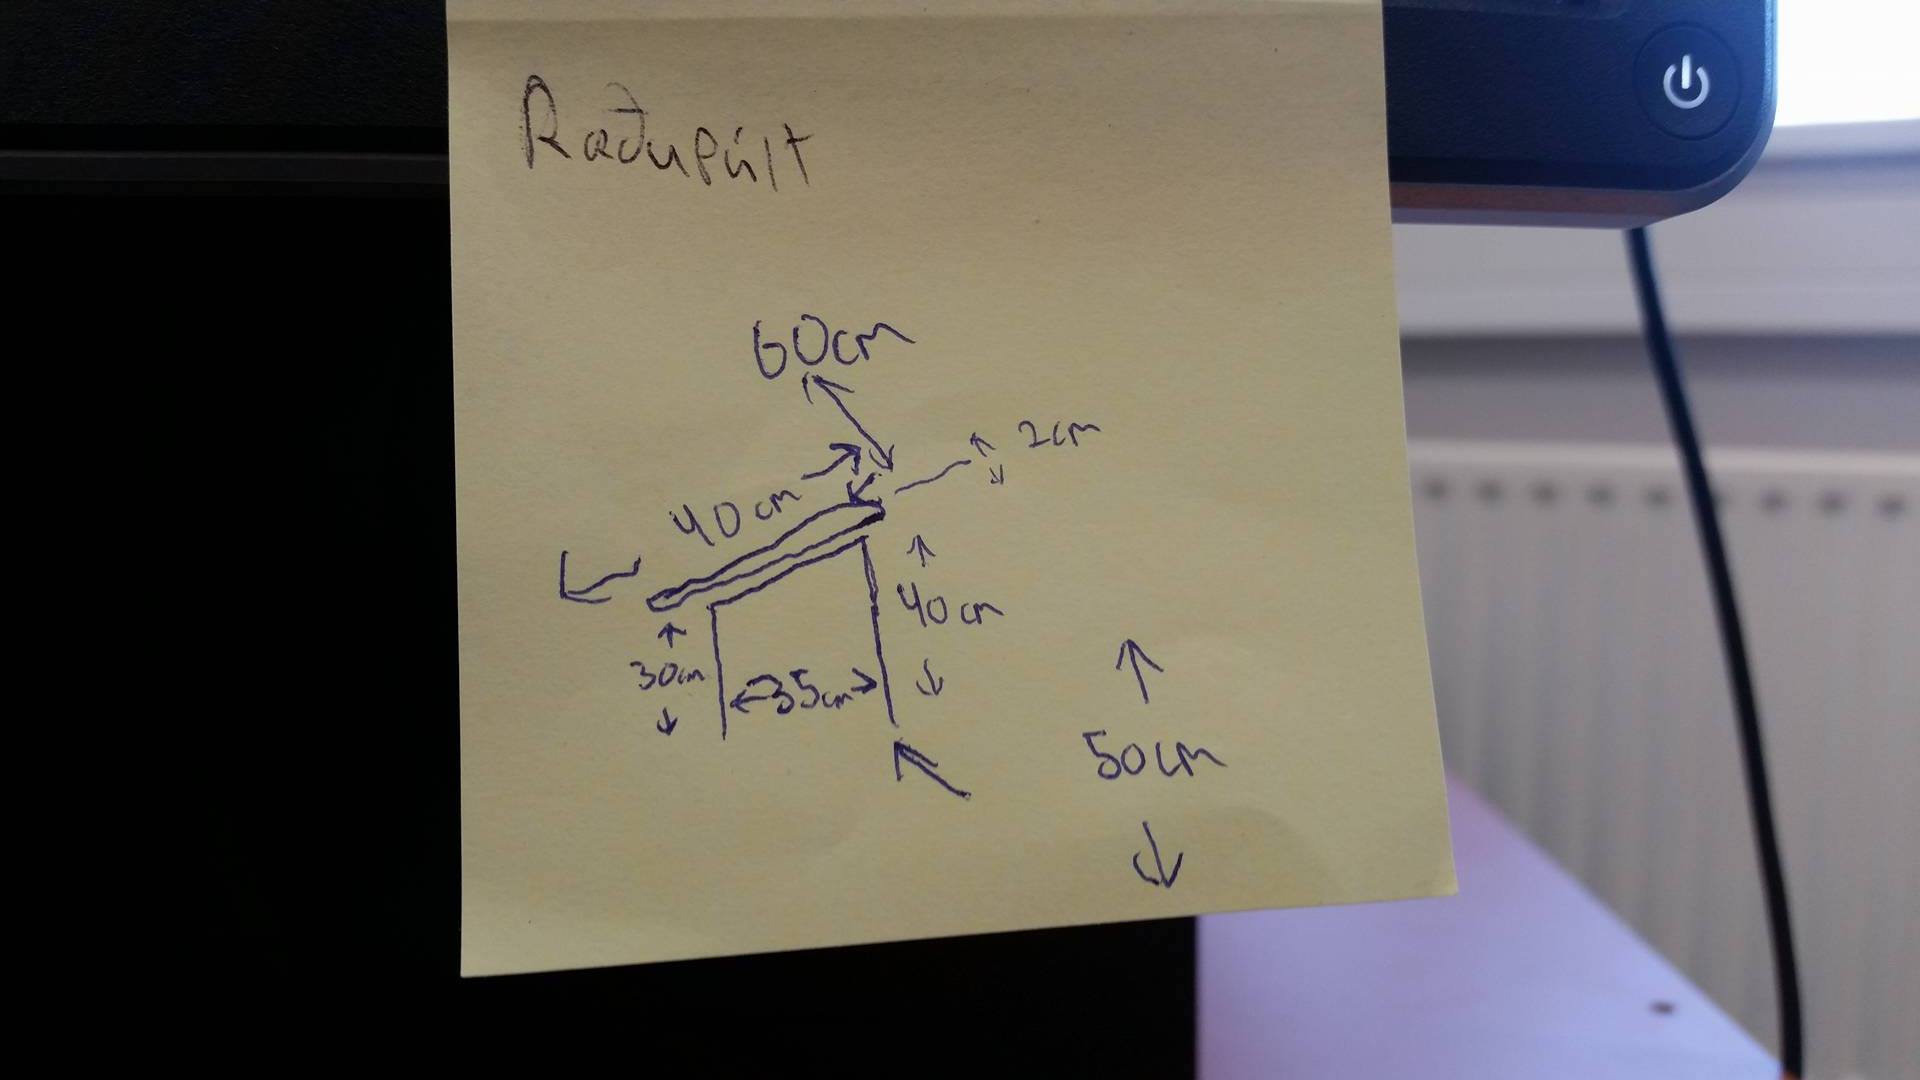 Ræðupúlt
60cm
2cm
40cm
40cm
30cm
35cm
50cm